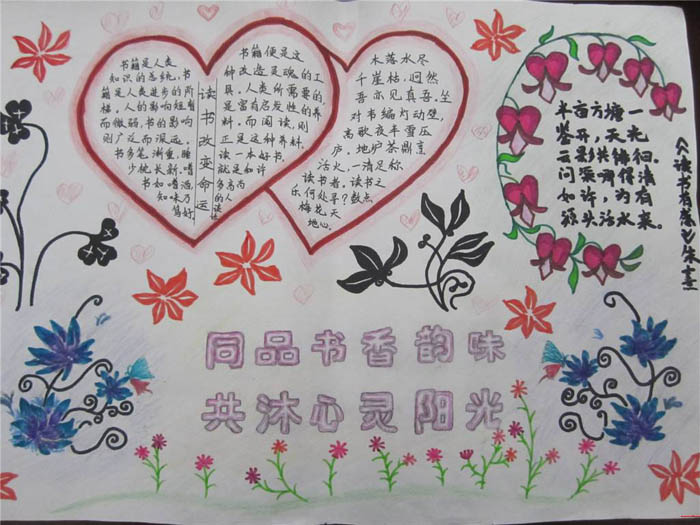 书籍是人类
知识的总统，书
籍是人类进步的阶
梯。人的影响短暂
而微弱，书的影响
则广泛而深远。
书多笔渐重，睡
少枕长新。嗜
书如嗜酒，
知味乃
笃好
读书改变命运
书籍便是这
种改造灵魂的工
具。人类所需要的，
是富有启发性的养
料。而阅读，则
正是这种养料。
读一本好书，
就是如许
多高尚
的人谈话
木落水尽
千崖枯，迥然
吾亦见真吾。坐
对韦编灯动壁，
高歌夜半雪压
庐，地炉茶鼎烹
活火，一清足称
读书者。读书之
乐何处寻？数点
梅花天
地心。
半亩方塘一
鉴开，天光
云影共徘徊。
问渠哪得清
如许，为有
源头活水来。
《读书有感》朱熹
同品书香韵味
共沐心灵阳光